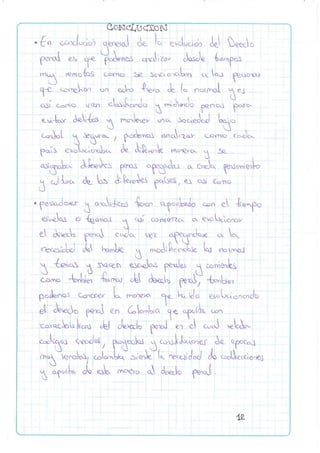 CONCLUCION
• En conclucion general de la evolución del Derecho
penal es que podemos analizar desde tiempos
muy remotos como se socionaban a las personas
que cometian un echo fuera de lo normal y es
asi como van clasificando y midiendo penas para
evitar delitos y mantener una sociedad bajo
control y segura, podemos analizar como cada
país evolucionaba de diferente manera y se
asignaba diferentes penas apegadas a cada pensamiento
y cultura de los diferentes países, es asi como
• pensadores y analíticos fueron aportando con el tiempo
escuelas o teorias y asi comenza a evolucionar
el derecho penal cada vez apegandose a la
necesidad del hombre y modificandose las normas
y teorias y nacen escuelas penales y corrientes
como tambien formas del derecho penal, tambien
podemos conocer la manera que ha ido evolucionando
el derecho penal en Colombia que aporta con
caracteristicas del derecho penal en el cual
codigos proyectos y constituciones de epocas
muy remotas, colombia siente la necesidad de codificaciones
y aporta de esta manera al derecho penal.
12